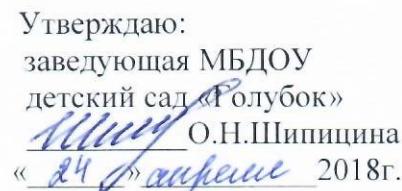 Утверждаю:
заведующая МБДОУ
детский сад «Голубок»
О.Н.Шипицина
« 24 » апреля 2018г.